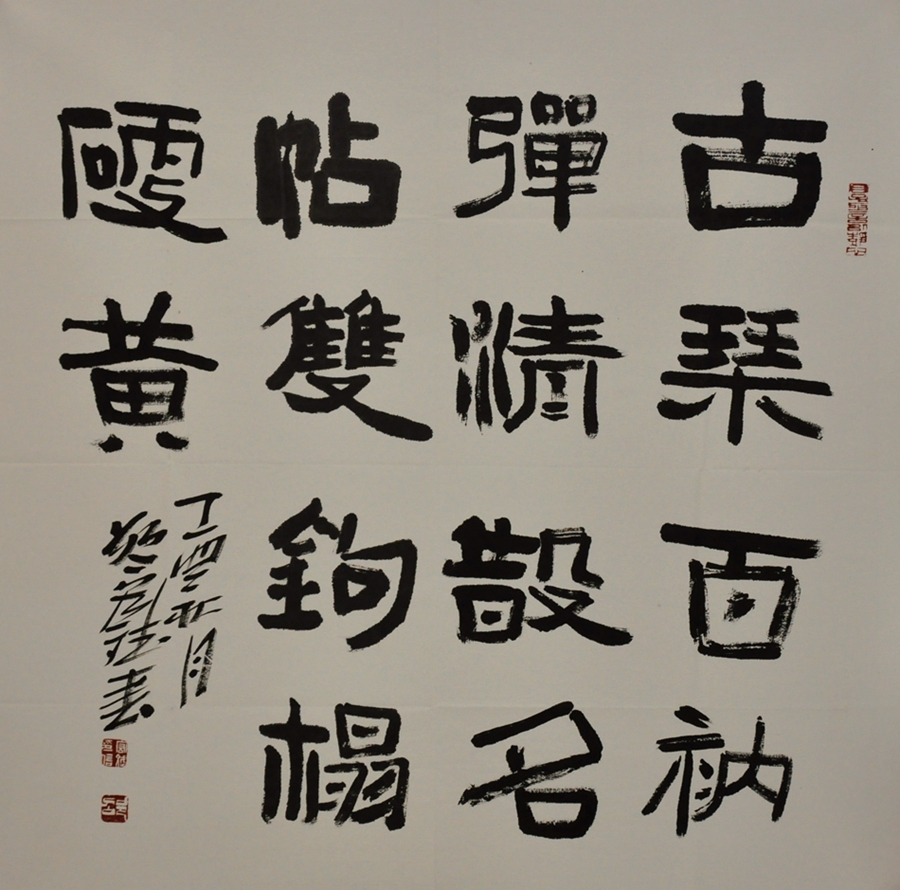 古琴百衲
彈清散名
帖雙鉤榻
硬黄
丁酉月